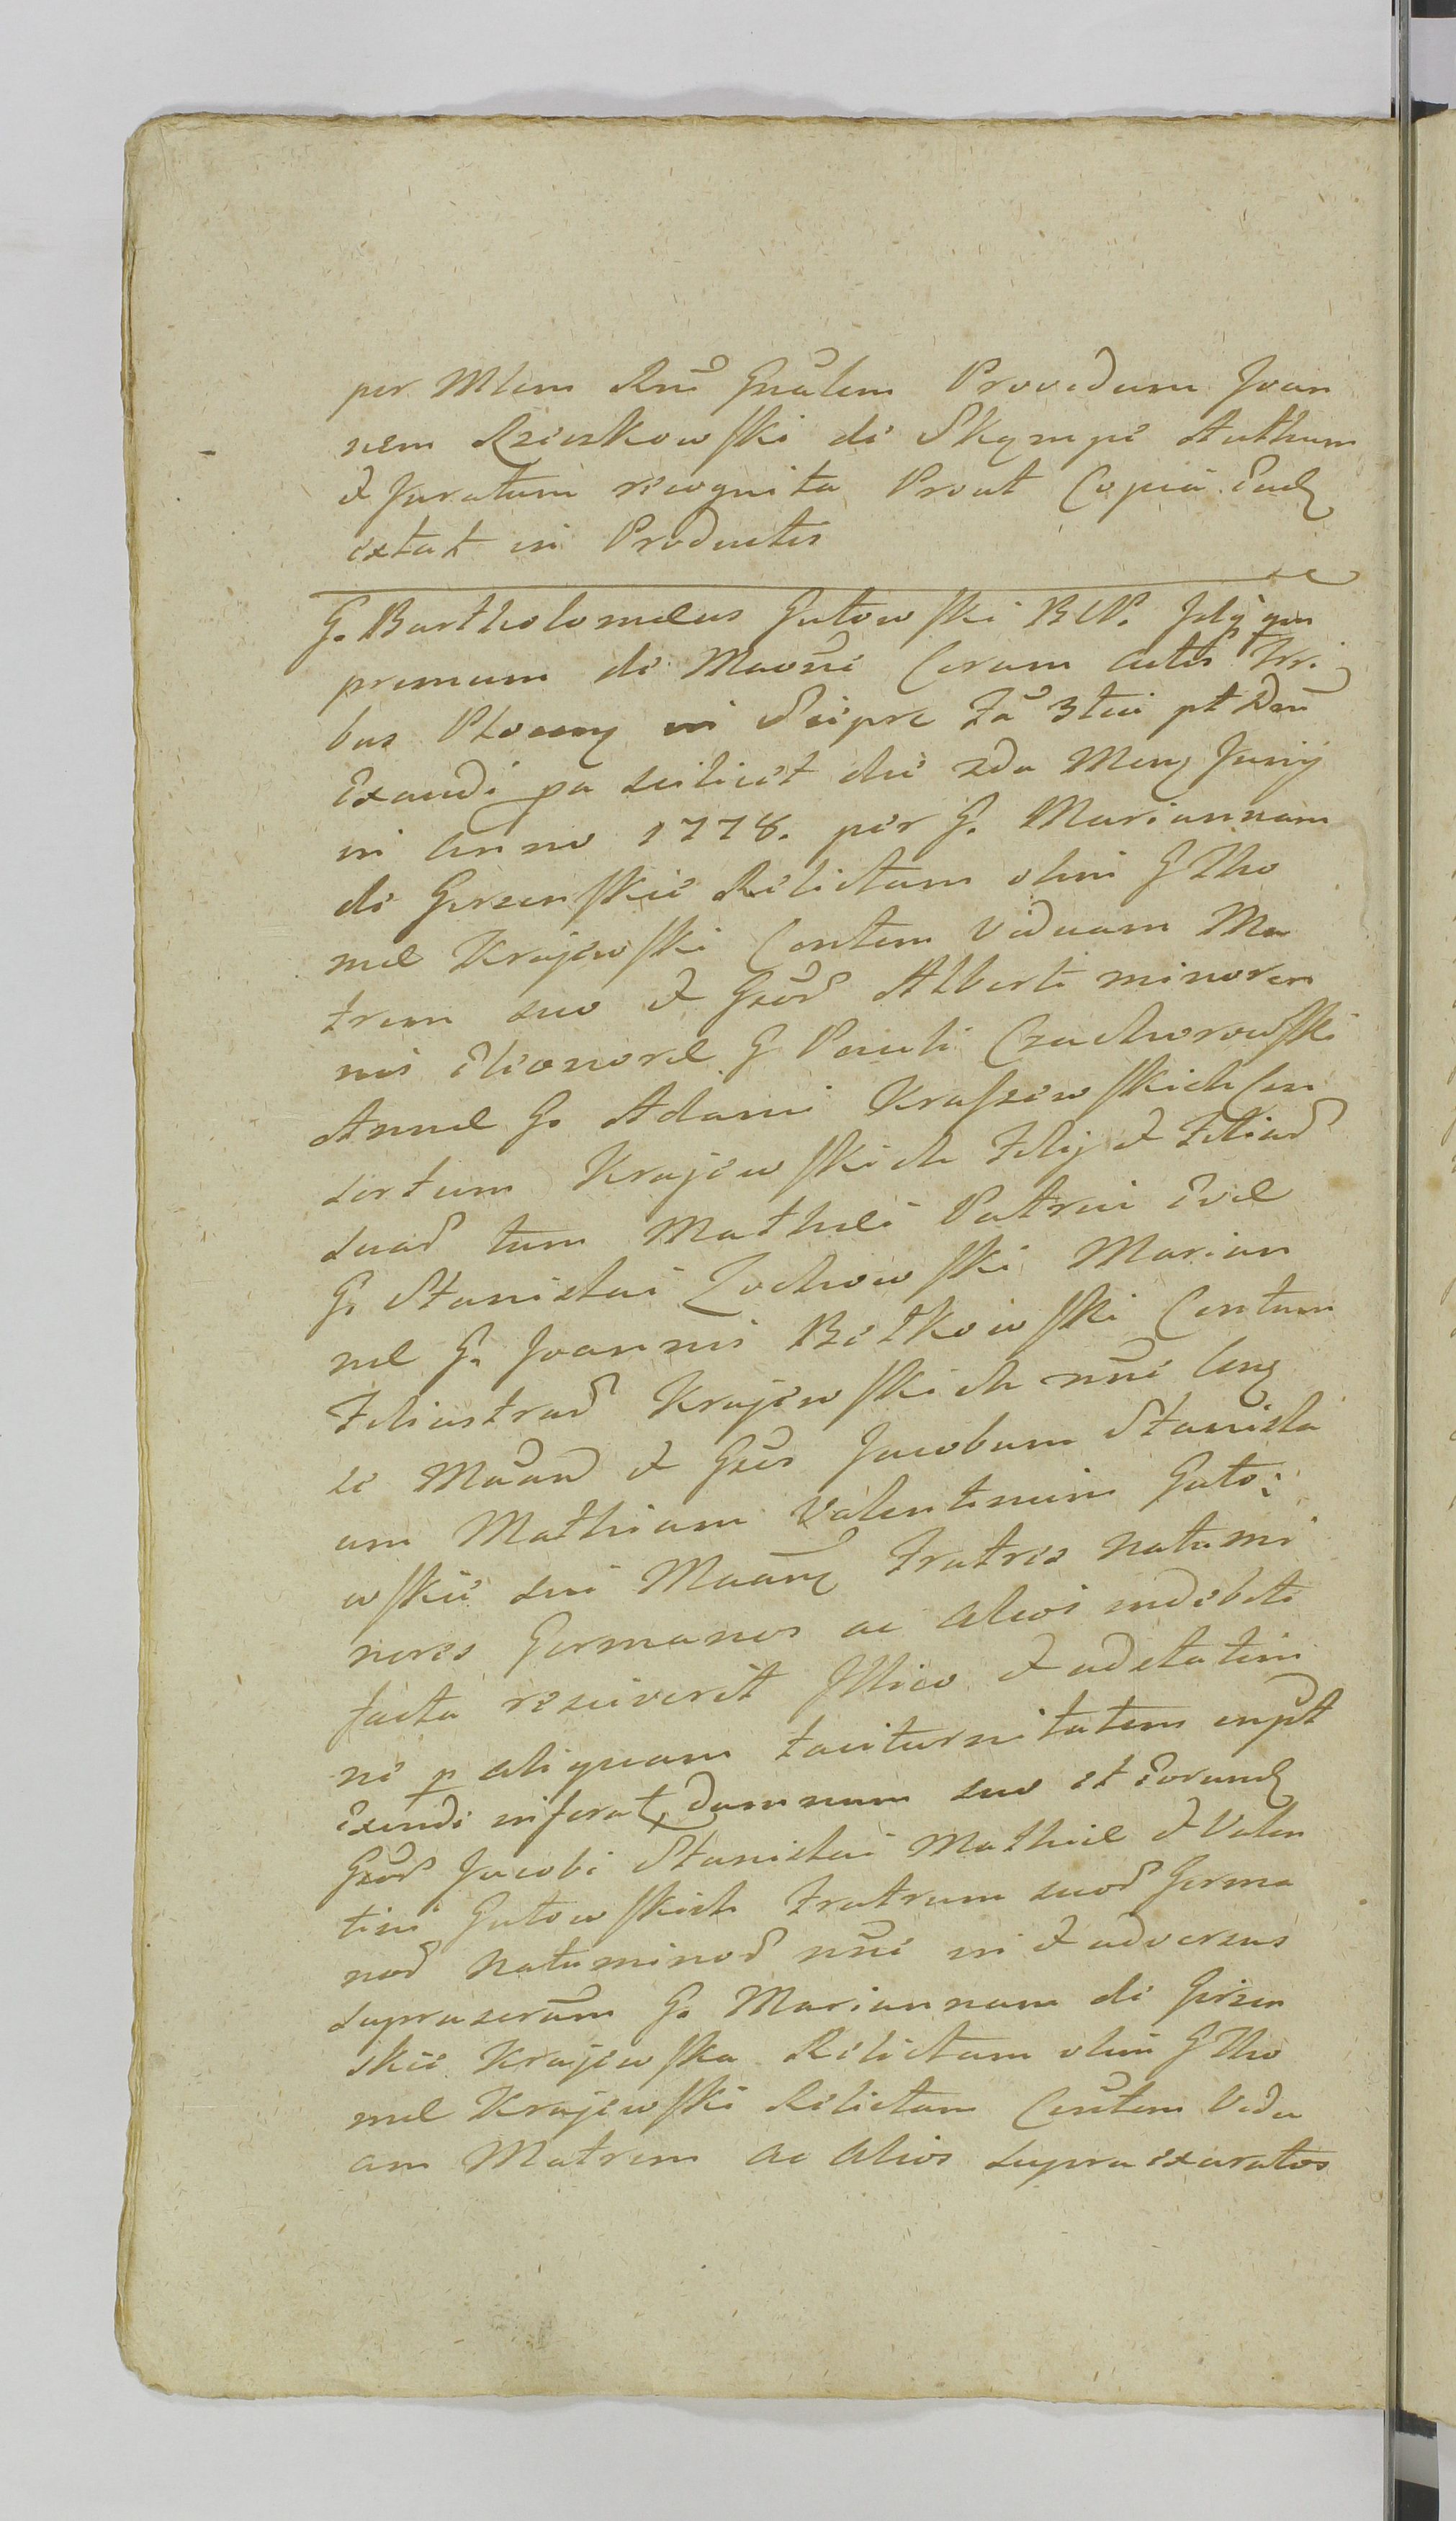 per Mlem Rni Gnalem Providum Joan
nem Rzeszkowski de Skempe Authum
& Juratum recognita Prout Copia Eadz
extat in Productis
G. Bartholomaeus Gutowski B. N. Idq qm
primum de Maoni Coram Actis Tri
bus Plocen in Sierpc fa 3tia pt Dm
Exaudi pa scilicet die 2da Mens Junij
in Anno 1778. per G. Mariannam
de Gorzenskie Relictam olim G Tho
mae Krajewski Contem Viduam Ma
trem suo & Gsor Alberti minoren
nis Eleonorae G Pauli Czachorowski
Annae G. Adami Kraszewskich Con
sortum Krajewskich Filij & Filiar
suar tum Mathaei Patrui Evae
G. Stanislai Zochowski Marian
nae G. Joannis Betkowski Contum
Filiastrar Krajewskich nni Cong
se Maand & Gsos Jacobum Stanisla
um Mathiam Valentinum Guto:
wskie sui Maang Fratres natu mi
nores Germanos ac alios indebite
facta resciverit Illico & adstatim
ne p aliquam taciturnitatem impt
Exindi inferat, damnum suo et Eorund
Gsor Jacobi Stanislai Mathiae & Valen
tini Gutowskich Fratrum suor Germa
nor natu minor nni in & adversus
suprascram G. Mariannam de Gorzen
skie Krajewska Relictam olim G Tho
mae Krajewski Relictam Contem Vidu
am Matrem ac alios supra exaratos